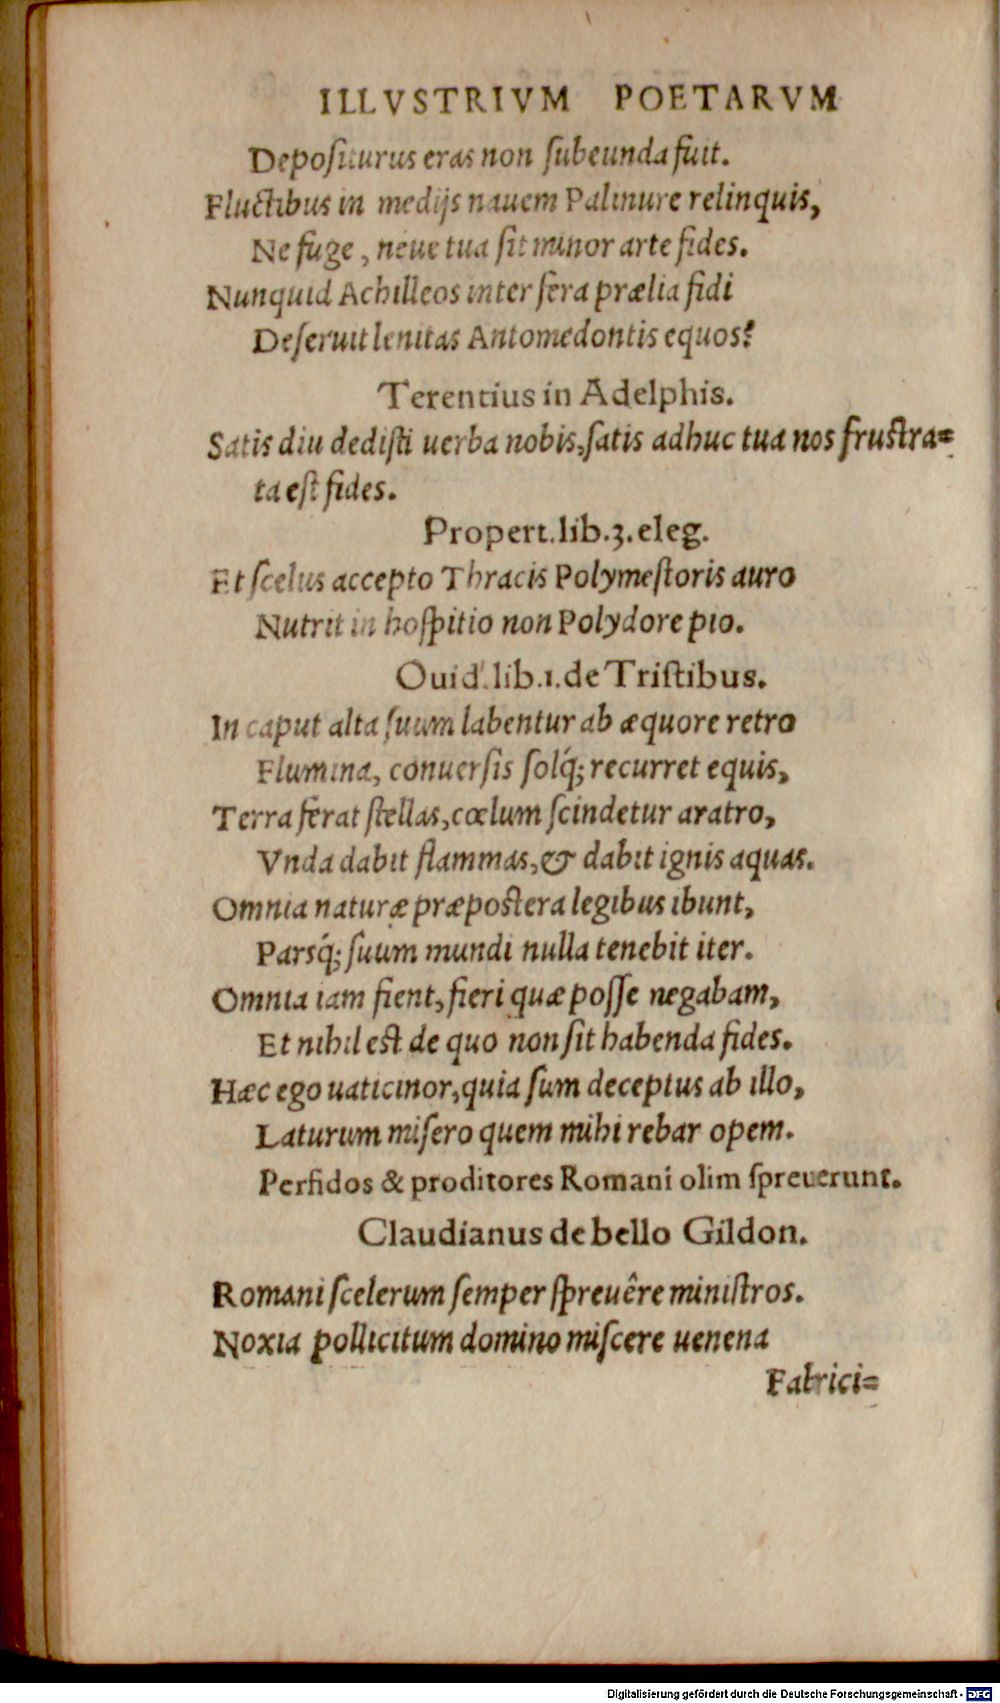 ILLVSTRIVM POETARVM
Depositurus eras non subeunda fuit.
Fluctibus in medijs nauem Palinure relinquis,
Ne fuge, neue tua sit minor arte fides.
Nunquid Achilleos inter fera prælia fidi
Deseruit lenitas Antomedontis equos?
Terentius in Adelphis.
Satis diu dedisti uerba nobis, satis adhuc tua nos frustra=
ta est fides.
Propert. lib. 3. eleg.
Et scelus accepto Thracis Polymestoris auro
Nutrit in hospitio non Polydore pio.
Ouid. lib. 1. de Tristibus.
In caput alta suum labentur ab æquore retro
Flumina, conuersis solq́; recurret equis,
Terra ferat stellas, cœlum scindetur aratro,
Vnda dabit flammas, & dabit ignis aquas.
Omnia naturæ præpostera legibus ibunt,
Parsq́; suum mundi nulla tenebit iter.
Omnia iam fient, fieri quæ posse negabam,
Et nihil est de quo non sit habenda fides.
Hæc ego uaticinor, quia sum deceptus ab illo,
Laturum misero quem mihi rebar opem.
Perfidos & proditores Romani olim spreuerunt.
Claudianus de bello Gildon.
Romani scelerum semper spreuêre ministros.
Noxia pollicitum domino miscere uenena
Fabrici=
Digitalisierung gefördert durch die Deutsche Forschungsgemeinschaft - DFG